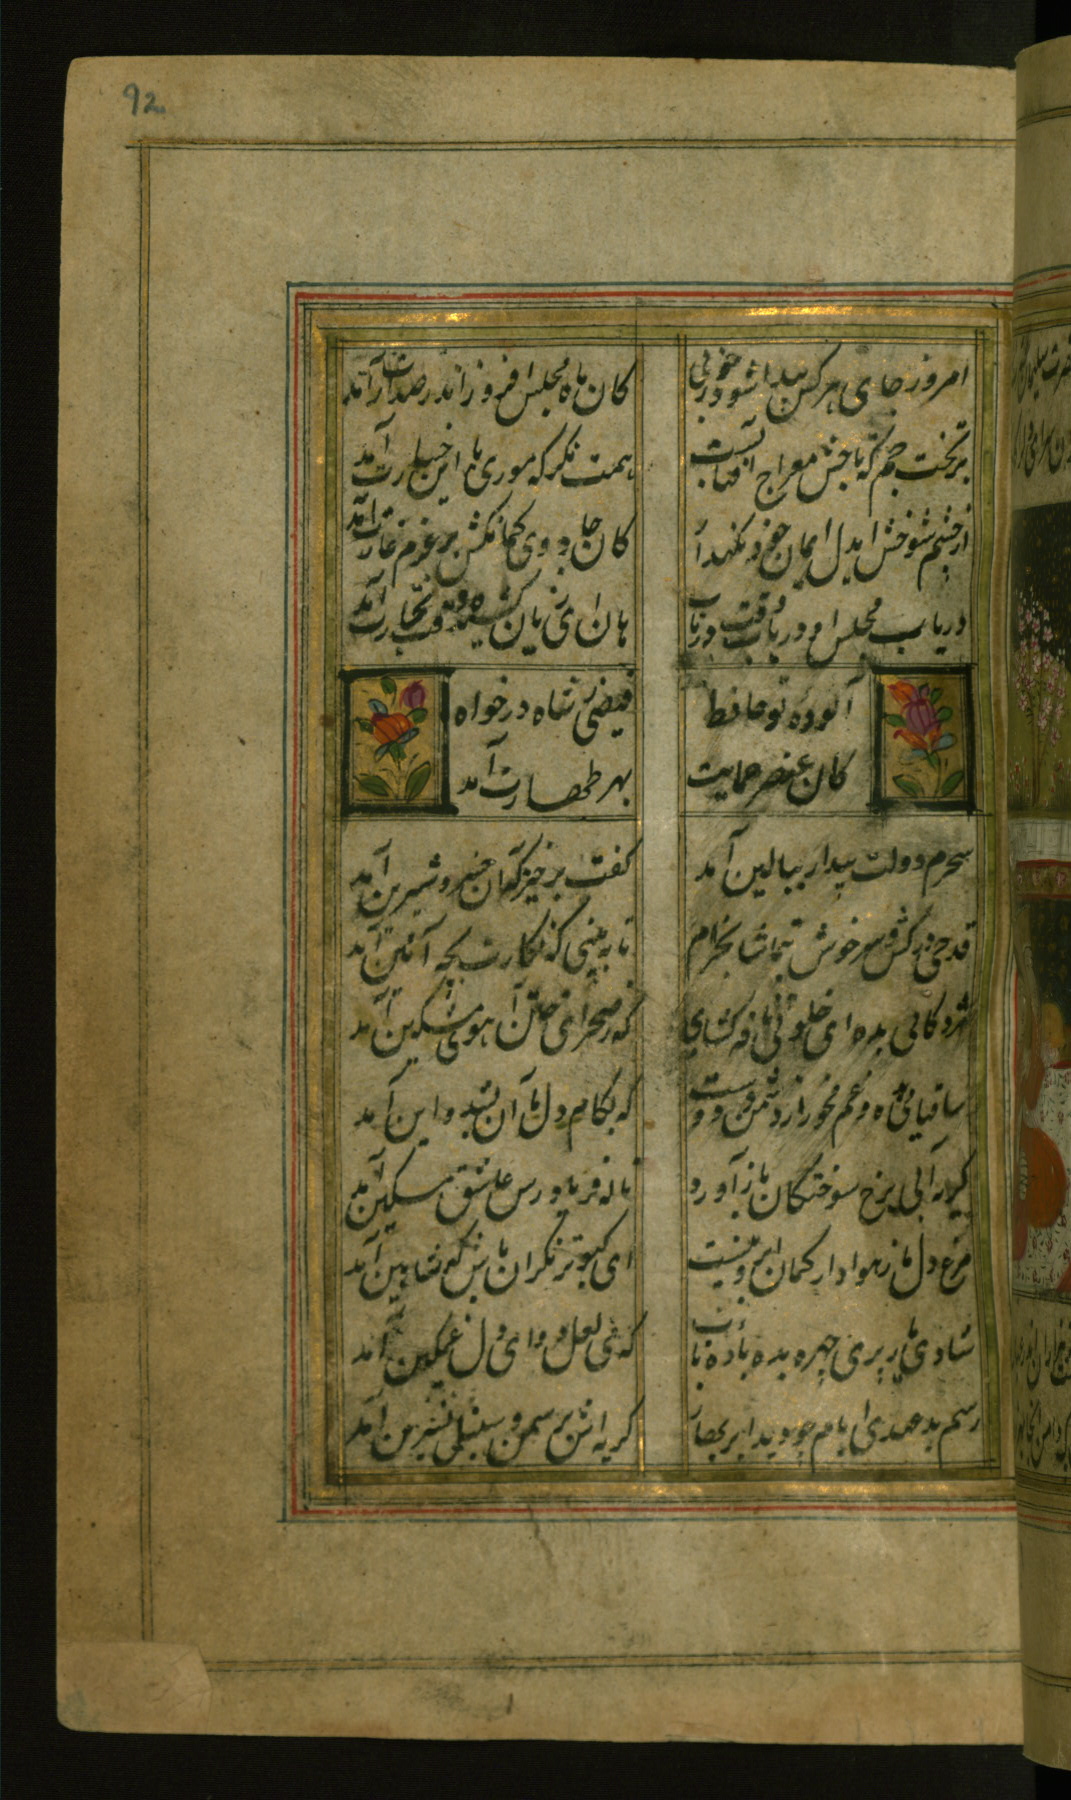 92
امروز جای هر کس پیدا شود ز خوبان
کان ماه مجلس افروز اندر صدارت آمد
بر تخت جم که تاجش معراج آفتابست
همت نگر که موری با این حقارت آمد
از چشم شوخش ایدل ایمان خود نگهدار
کان جادوی کمانکش بر عزم غارت آمد
دریاب مجلس او دریاب وقت و دریاب
هان ای زیان کشیده وقت تجارت آمد
آلوده تو حافظ
فیضی ز شاه درخواه
کان عنصر سماحت
بهر طهارت آمد
سحرم دولت بیدار ببالین آمد
گفت برخیز که آن خسرو شیرین آمد
قدحی درکش و سرخوش بتماشا بخرام
تا به بینی که نگارت بچه آئین آمد
مژدگانی بده ای خلوتی نافه کشای
که ز صحرای ختن آهوی مشکین آمد
ساقیا می بده و غم مخور از دشمن و دوست
که بکام دل ما آن بشد و این آمد
گریه آبی برخ سوختگان باز آورد
ناله فریادرس عاشق مسکین آمد
مرغ دل باز هوادار کمان ابروئیست
ای کبوتر نگران باش که شاهین آمد
شادی یار پری چهره بده باده ناب
که می لعل دوای دل غمگین آمد
رسم بدعهدی ایام چو دید ابر بهار
گریه اش بر سمن و سنبل و نسرین آمد